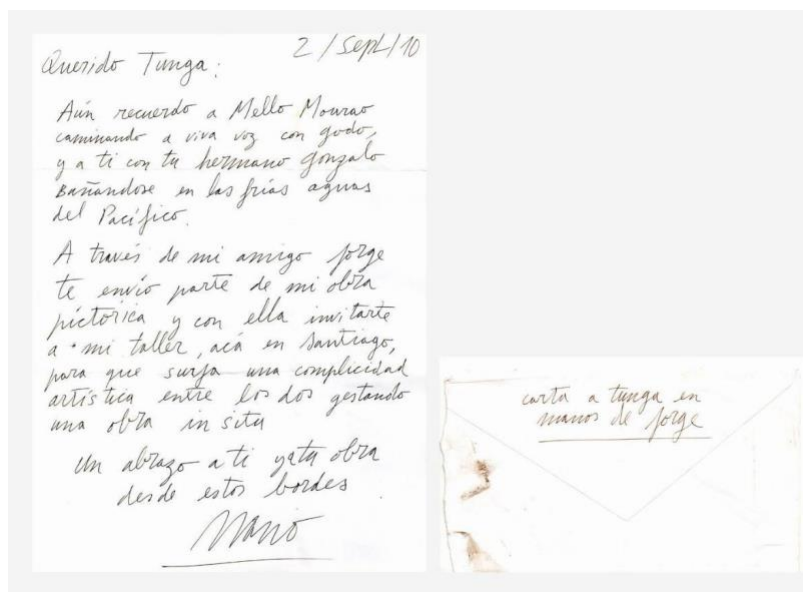 2 / Sept / 10
Querido Tunga:
Aún recuerdo a Mello Mourao
caminando a viva voz con godo,
y a ti con tu hermano gonzalo
Bañandose en las frías aguas
del Pacífico.
A través de mi amigo jorge
te envío parte de mi obra
pictórica y con ella invitarte
a mi taller, acá en Santiago,
para que surja una complicidad
artística entre los dos gestando
una obra in situ
Un abrazo a ti y a tu obra
desde estos bordes
carta a tunga en
manos de jorge